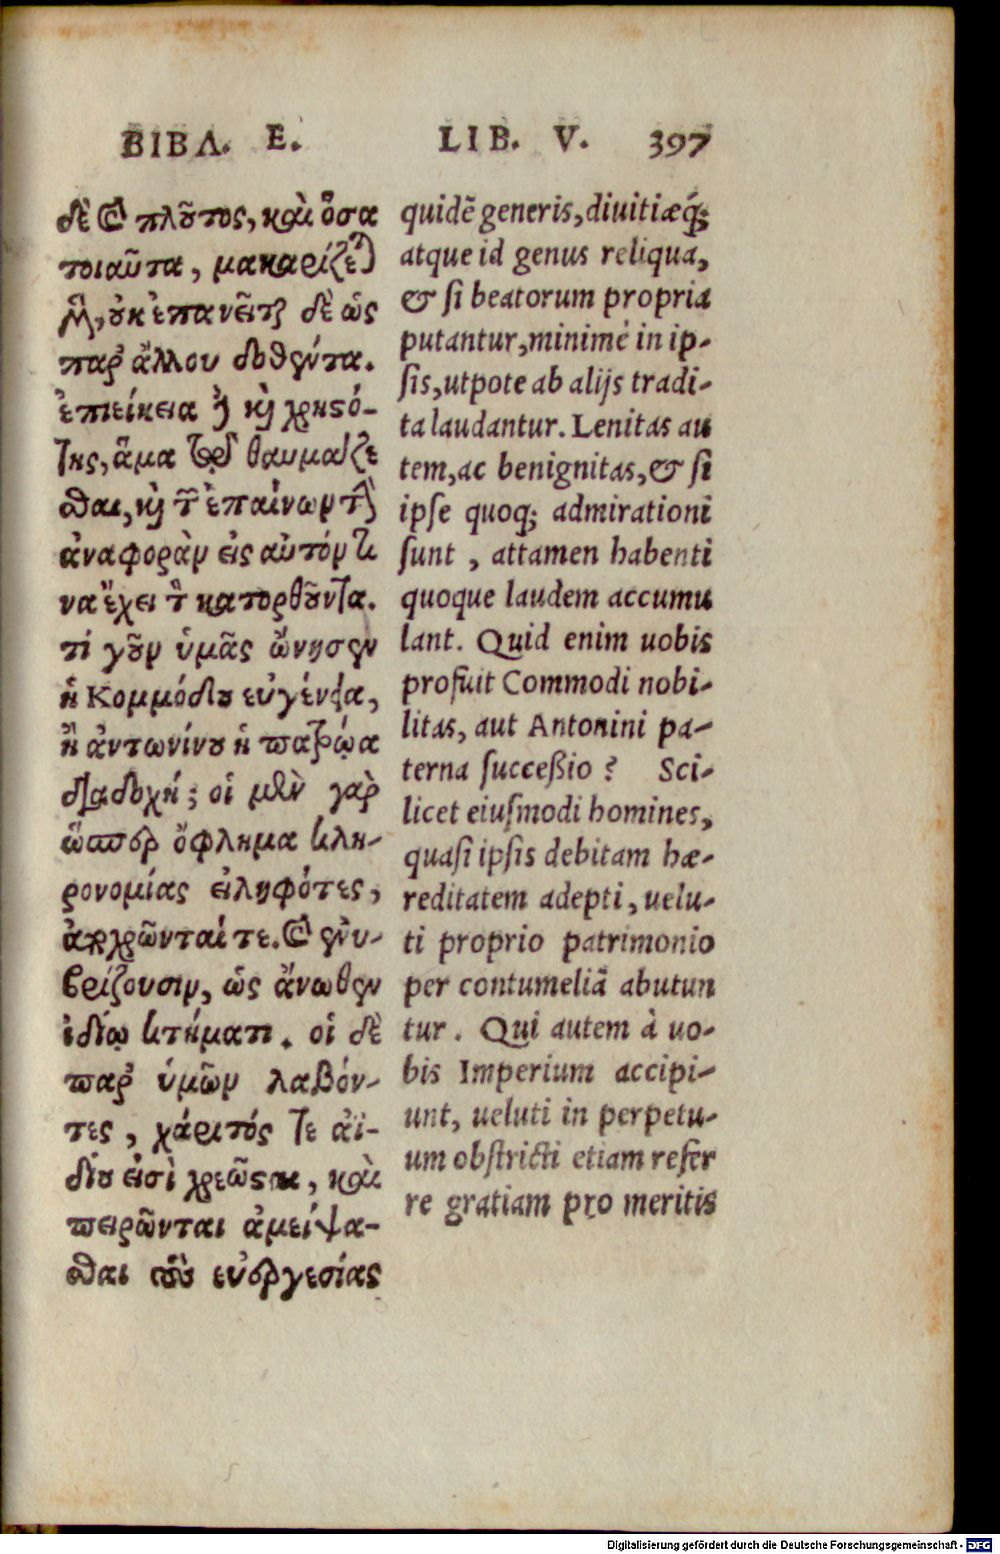 ΒΙΒΛ. Ε. LIB. V. 397
δὲ καὶ πλοῦτος, καὶ ὅσα
τοιαῦτα, μακαρίζεται
μὲν, οὐκ ἐπαινεῖται δὲ ὡς
παρ' ἄλλου δοθέντα.
ἐπιείκεια δὲ καὶ χρηστό-
της, ἅμα τῷ θαυμάζε
σθαι, καὶ τῶν ἐπαίνων τὴν
ἀναφορὰν εἰς αὐτόν τι
να ἔχει τὸν κατορθοῦντα.
τί γοῦν ὑμᾶς ὤνησεν
ἡ Κομμόδου εὐγένεια,
ἢ ἀντωνίνου ἡ πατρῴα
διαδοχή; οἱ μὲν γὰρ
ὥσπερ ὄφλημα κλη-
ρονομίας εἰληφότες,
ἀποχρῶνταί τε. καὶ ἐνυ-
βρίζουσιν, ὡς ἄνωθεν
ἰδίῳ κτήματι. οἱ δὲ
παρ' ὑμῶν λαβόν-
τες, χάριτός τε ἀϊ-
δίου εἰσὶ χρεῶσται, καὶ
πειρῶνται ἀμείψα-
σθαι τὰς εὐεργεσίας
quidẽ generis, diuitiæq́;
atque id genus reliqua,
& si beatorum propria
putantur, minimè in ip-
sis, utpote ab alijs tradi-
ta laudantur. Lenitas au
tem, ac benignitas, & si
ipse quoq; admirationi
sunt, attamen habenti
quoque laudem accumu
lant. Quid enim uobis
profuit Commodi nobi-
litas, aut Antonini pa-
terna successio? Sci-
licet eiusmodi homines,
quasi ipsis debitam hæ-
reditatem adepti, uelu-
ti proprio patrimonio
per contumeliã abutun
tur. Qui autem à uo-
bis Imperium accipi-
unt, ueluti in perpetu-
um obstricti etiam refer
re gratiam pro meritis
Digitalisierung gefördert durch die Deutsche Forschungsgemeinschaft - DFG